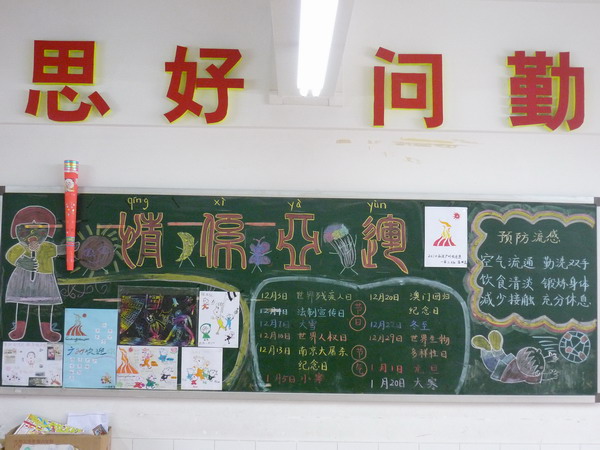 思 好 问 勤
qíng xì yà yùn
情 系 亚 运
12月3日 世界残疾人日
12月4日 法制宣传日
12月7日 大雪
12月10日 世界人权日
12月13日 南京大屠杀
纪念日
1月5日 小寒
节
日
节
气
12月20日 澳门回归
纪念日
12月22日 冬至
12月29日 世界生物
多样性日
1月1日 元旦
1月20日 大寒
预防流感
空气流通 勤洗双手
饮食清淡 锻炼身体
减少接触 充分休息